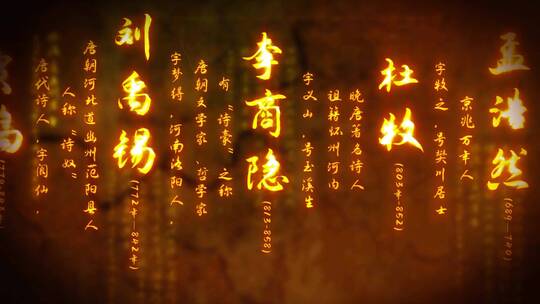 孟浩然
(689-740)
京兆万年人
字牧之，号樊川居士
杜牧
(803年-852)
晚唐著名诗人
祖籍怀州河内
字义山，号玉溪生
李商隐
(813-858)
有“诗豪”之称
唐朝文学家，哲学家
字梦得，河南洛阳人，
刘禹锡
(772年-842年)
唐朝河北道幽州范阳县人
人称“诗奴”
唐代诗人，字阆仙，
岛